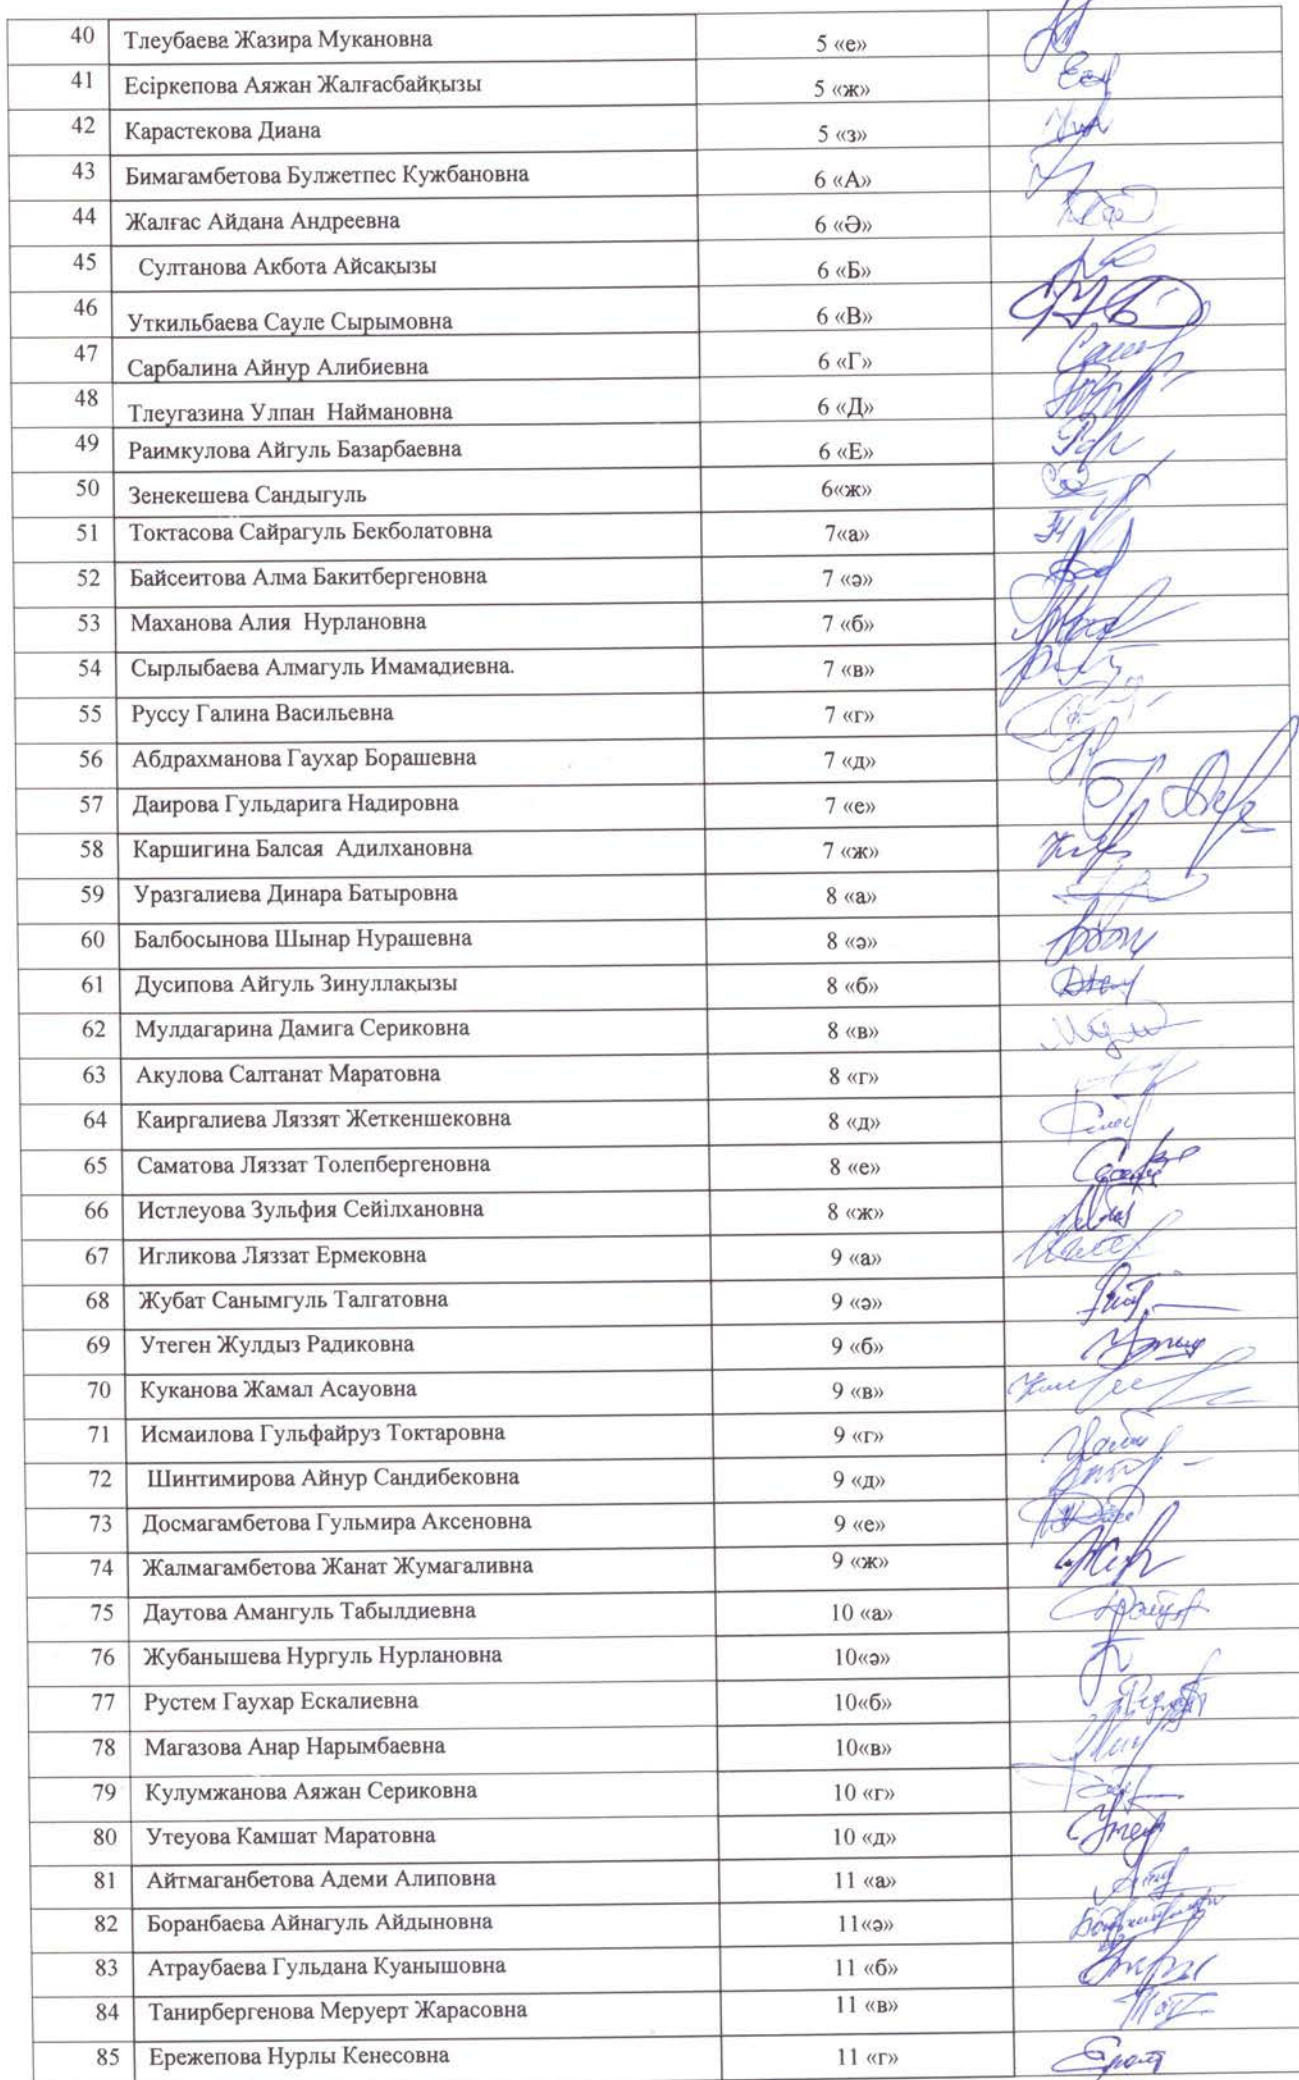 40 Тлеубаева Жазира Мукановна 5 «е»
41 Есіркепова Аяжан Жалғасбайқызы 5 «ж»
42 Карастекова Диана 5 «з»
43 Бимагамбетова Булжетпес Кужбановна 6 «А»
44 Жалғас Айдана Андреевна 6 «Ә»
45 Султанова Акбота Айсақызы 6 «Б»
46 Уткильбаева Сауле Сырымовна 6 «В»
47 Сарбалина Айнур Алибиевна 6 «Г»
48 Тлеугазина Улпан Наймановна 6 «Д»
49 Раимкулова Айгуль Базарбаевна 6 «Е»
50 Зенекешева Сандыгуль 6«ж»
51 Токтасова Сайрагуль Бекболатовна 7«а»
52 Байсеитова Алма Бакитбергеновна 7 «ә»
53 Маханова Алия Нурлановна 7 «б»
54 Сырлыбаева Алмагуль Имамадиевна. 7 «в»
55 Руссу Галина Васильевна 7 «г»
56 Абдрахманова Гаухар Борашевна 7 «д»
57 Даирова Гульдарига Надировна 7 «е»
58 Каршигина Балсая Адилхановна 7 «ж»
59 Уразгалиева Динара Батыровна 8 «а»
60 Балбосынова Шынар Нурашевна 8 «ә»
61 Дусипова Айгуль Зинуллақызы 8 «б»
62 Мулдагарина Дамига Сериковна 8 «в»
63 Акулова Салтанат Маратовна 8 «г»
64 Каиргалиева Ляззят Жеткеншековна 8 «д»
65 Саматова Ляззат Толепбергеновна 8 «е»
66 Истлеуова Зульфия Сейілхановна 8 «ж»
67 Игликова Ляззат Ермековна 9 «а»
68 Жубат Санымгуль Талгатовна 9 «ә»
69 Утеген Жулдыз Радиковна 9 «б»
70 Куканова Жамал Асауовна 9 «в»
71 Исмаилова Гульфайруз Токтаровна 9 «г»
72 Шинтимирова Айнур Сандибековна 9 «д»
73 Досмагамбетова Гульмира Аксеновна 9 «е»
74 Жалмагамбетова Жанат Жумагаливна 9 «ж»
75 Даутова Амангуль Табылдиевна 10 «а»
76 Жубанышева Нургуль Нурлановна 10«ә»
77 Рустем Гаухар Ескалиевна 10«б»
78 Магазова Анар Нарымбаевна 10«в»
79 Кулумжанова Аяжан Сериковна 10 «г»
80 Утеуова Камшат Маратовна 10 «д»
81 Айтмаганбетова Адеми Алиповна 11 «а»
82 Боранбаева Айнагуль Айдыновна 11«ә»
83 Атраубаева Гульдана Куанышовна 11 «б»
84 Танирбергенова Меруерт Жарасовна 11 «в»
85 Ережепова Нурлы Кенесовна 11 «г»